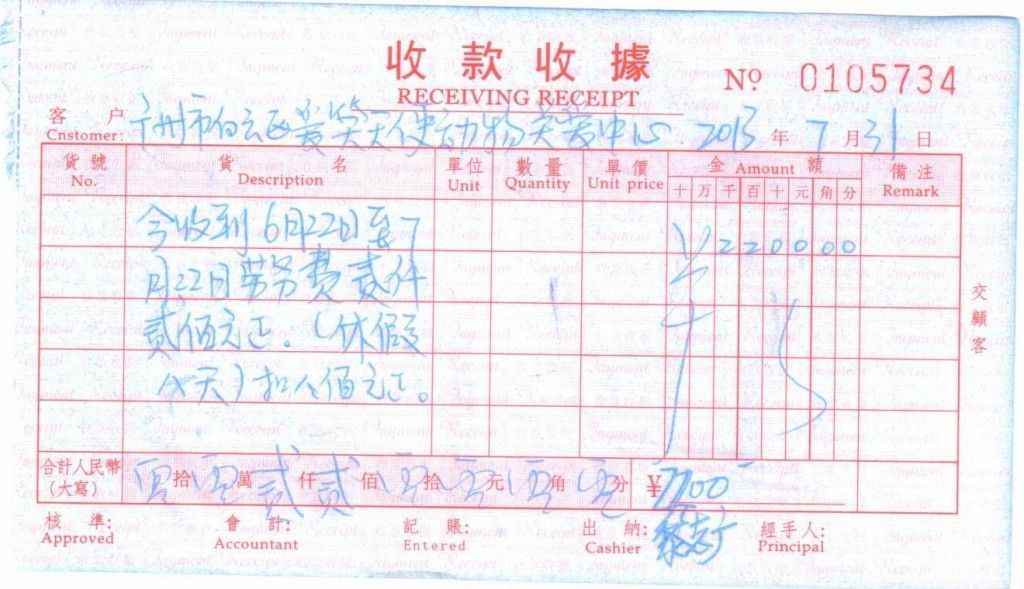 收款收據
RECEIVING RECEIPT
Nº 0105734
客 户
Cnstomer: 广州市白云区 天使动物 中心 2013 年 7 月 31 日
貨號 No. 貨名 Description 單位 Unit 數量 Quantity 單價 Unit price 金 Amount 額 備注 Remark
十 万 千 百 十 元 角 分
今收到6月22日至7 ¥ 220000
月22日劳务费贰仟
贰佰元正。(休假
天)扣 佰元正。
交顧客
合計人民幣
(大寫) 零拾零萬贰仟贰佰零拾零元零角零分 ¥
核 準: 會 計: 記 賬: 出 納: 經手人:
Approved Accountant Entered Cashier Principal